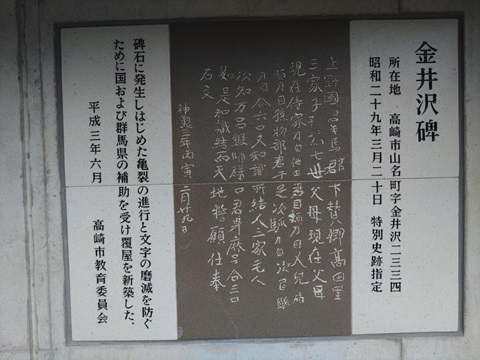 金井沢碑
所在地　高崎市山名町字金井沢一三三四
昭和二十九年三月二十日　特別史跡指定
上野國羣馬郡下賛郷高田里
三家子　為七世父母現在父母
現在侍家刀自他田君目頬刀自又児加
那刀自孫物部君午足次馴刀自次乙馴
刀自合六口又知識所結人三家毛人
次知万呂鍛師礒部君身麻呂合三口
如是知識結而天地誓願仕奉
石文
神亀三年丙寅二月廿九日
碑石に発生しはじめた亀裂の進行と文字の磨滅を防ぐ
ために国および群馬県の補助を受け覆屋を新築した。
平成三年六月　　高崎市教育委員会